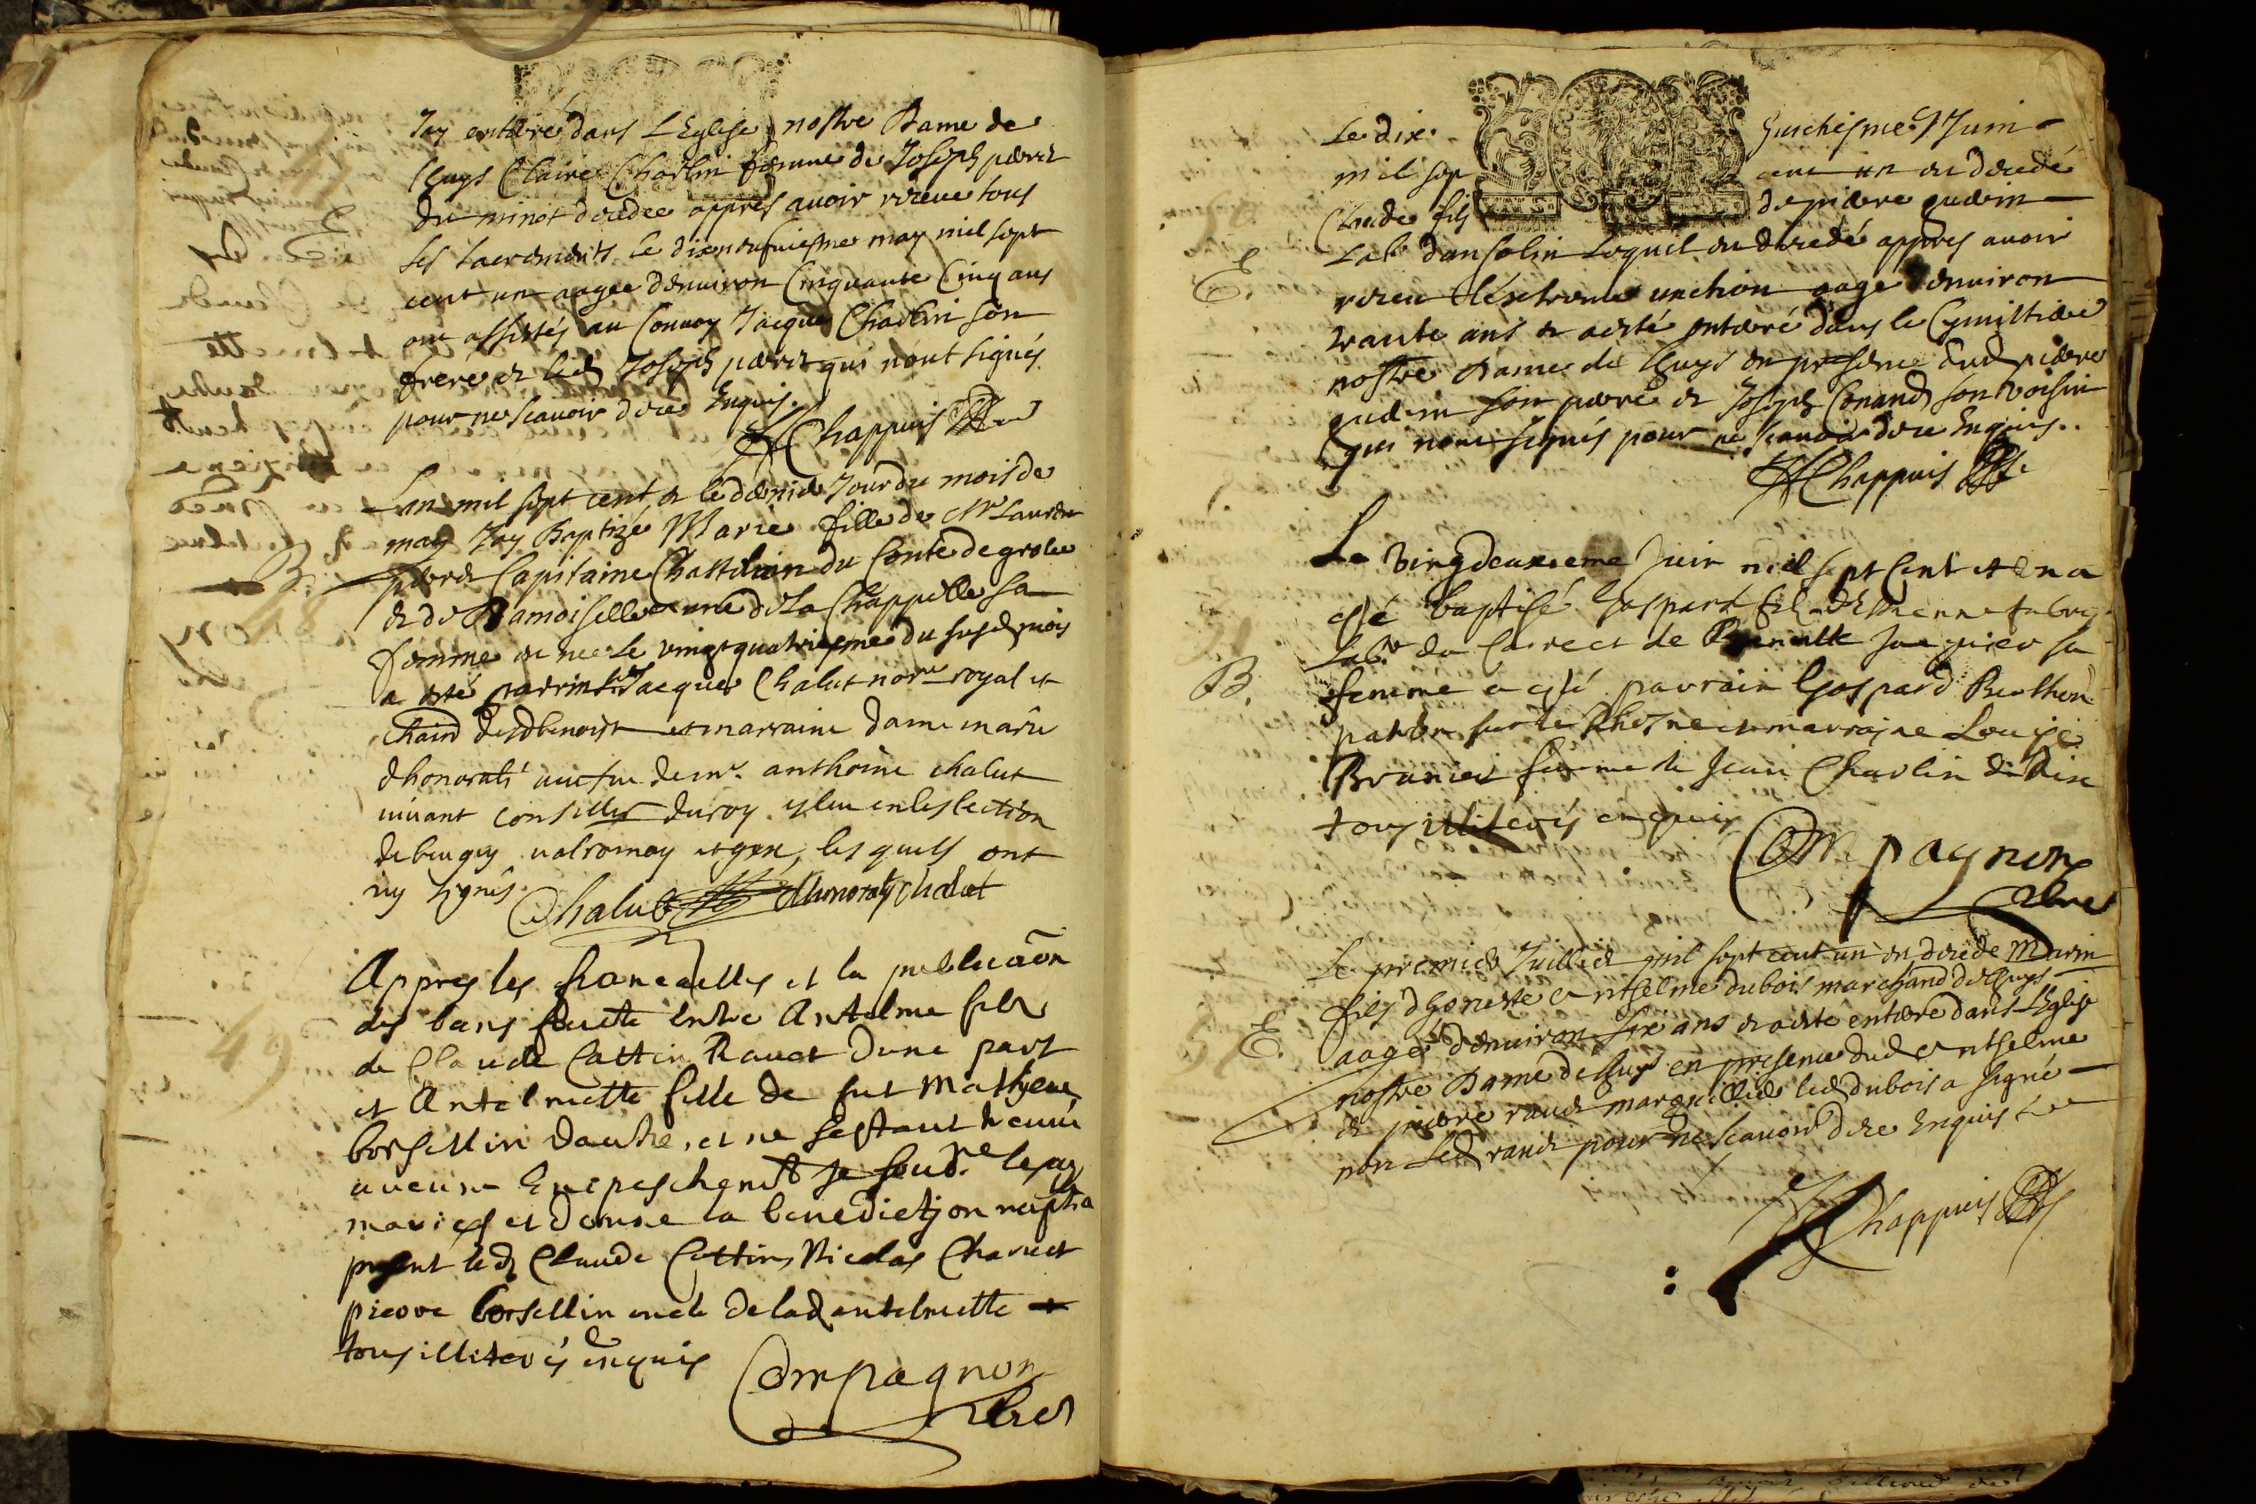 Jay enterré dans LEglise nostre Dame de
Lhuys Claire Charlin femme de Joseph peret
du minot decedee appres avoir receue tous
ses sacrements le dixneufviesme may mil sept
cent un aagee denviron Cinquante Cinq ans
ont assistés au Convoy Jacques Charlin son
frere et led Joseph peret qui nont signés
pour ne scavoir dece Enquis.
Chappuis
Lan mil sept cent, et le dernier Jour du mois de
may Jay Baptizé Marie fille de Mr Laurent
peret Capitaine Chattelain du Conté de grolee
et de Damoiselle de La Chappelle sa
femme et nee Le vingtquatriesme du susd mois
a esté parrin Sr Jacques Chalut nore royal et
de benoist et marraine dame marie
dhonorati veufue de mr. anthoine chalut
vivant conseiller du roy esleu en leslection
de beugey valromey et gex, lesquels ont
icy signés.
Chalut dhonoraty chalut
B.
Appres les fiancailles et la publicaôn
des bans faicte entre Antelme fils
de Claude Cattin Rauet dune part
et Antelmette fille de fut Mathieu
borsellin dautre, et ne sestant treuvé
aucune Empeschemt Je soubne les ay
mariés et donne la benediction nuptia
presnt led Claude Cattin, Nicolas Charuet
pierre borsellin oncle de lad antelmette
tous illiterés enquis
Compagnon
49
Le dix huichiesme Juin
mil sep cent un est decedé
Claude fils de pierre gudin
Labr dansolin Lequel est decedé appres avoir
receu Lextreme unction aage denviron
trante ans et a esté enterré dans le Cymiltiere
nostre Dame de Lhuys en presence dud pierre
gudin son pere et Joseph Conand son voisin
qui nont signés pour ne scavoir dece Enquis.
Chappuis
E.
Le vingdeuxieme Juin mil sept Cent et un a
esté baptisé Gaspard fils dEstienne
Labr du et de sa
femme a esté parrain Gaspard Berthon
patron sur le Rhosne et marraine Louise
Branier femme de Jean Charlin
tous illiterés enquis
Compagnon
B.
Le premier Juillet mil sept cent un est decede Marin
fils dhoneste Anthelme dubois marchand de Lhuys
aagé denviron six ans et a esté enterre dans LEglise
nostre Dame de Lhuys en presence dud Anthelme
et pierre rauet marguillier led dubois a signé
non led rauet pour ne scavoir dece Enquis
Chappuis
E.